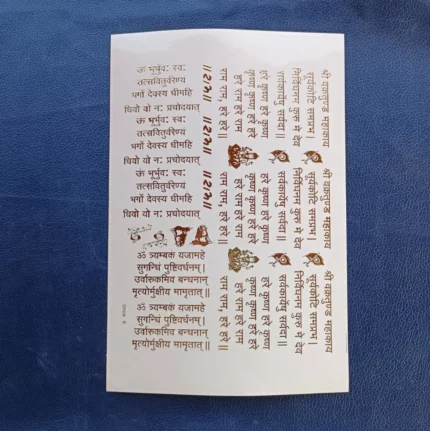 ॐ भूर्भुवः स्वः
तत्सवितुर्वरेण्यं
भर्गो देवस्य धीमहि
धियो यो नः प्रचोदयात्
ॐ भूर्भुवः स्वः
तत्सवितुर्वरेण्यं
भर्गो देवस्य धीमहि
धियो यो नः प्रचोदयात्
ॐ भूर्भुवः स्वः
तत्सवितुर्वरेण्यं
भर्गो देवस्य धीमहि
धियो यो नः प्रचोदयात्
ॐ त्र्यम्बकं यजामहे
सुगन्धिं पुष्टिवर्धनम् |
उर्वारुकमिव बन्धनान्
मृत्योर्मुक्षीय मामृतात् ||
ॐ त्र्यम्बकं यजामहे
सुगन्धिं पुष्टिवर्धनम् |
उर्वारुकमिव बन्धनान्
मृत्योर्मुक्षीय मामृतात् ||
हरे कृष्णा हरे कृष्णा
कृष्णा कृष्णा हरे हरे
हरे राम हरे राम
राम राम, हरे हरे ||
हरे कृष्णा हरे कृष्णा
कृष्णा कृष्णा हरे हरे
हरे राम हरे राम
राम राम, हरे हरे ||
हरे कृष्णा हरे कृष्णा
कृष्णा कृष्णा हरे हरे
हरे राम हरे राम
राम राम, हरे हरे ||
श्री वक्रतुण्ड महाकाय
सूर्यकोटि समप्रभ |
निर्विघ्नम कुरु मे देव
सर्वकार्येषु सर्वदा ||
श्री वक्रतुण्ड महाकाय
सूर्यकोटि समप्रभ |
निर्विघ्नम कुरु मे देव
सर्वकार्येषु सर्वदा ||
श्री वक्रतुण्ड महाकाय
सूर्यकोटि समप्रभ |
निर्विघ्नम कुरु मे देव
सर्वकार्येषु सर्वदा ||